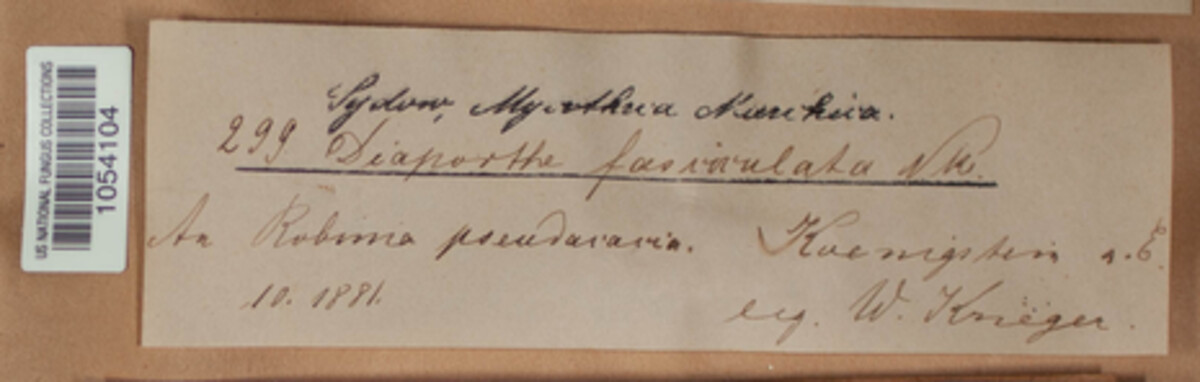 US NATIONAL FUNGUS COLLECTIONS
1054104
Sydow, Mycotheca Marchica.
299 Diaporthe fasciculata Nke.
An Robinia pseudacacia. Koenigstein a. E.
10. 1881. leg. W. Krieger.